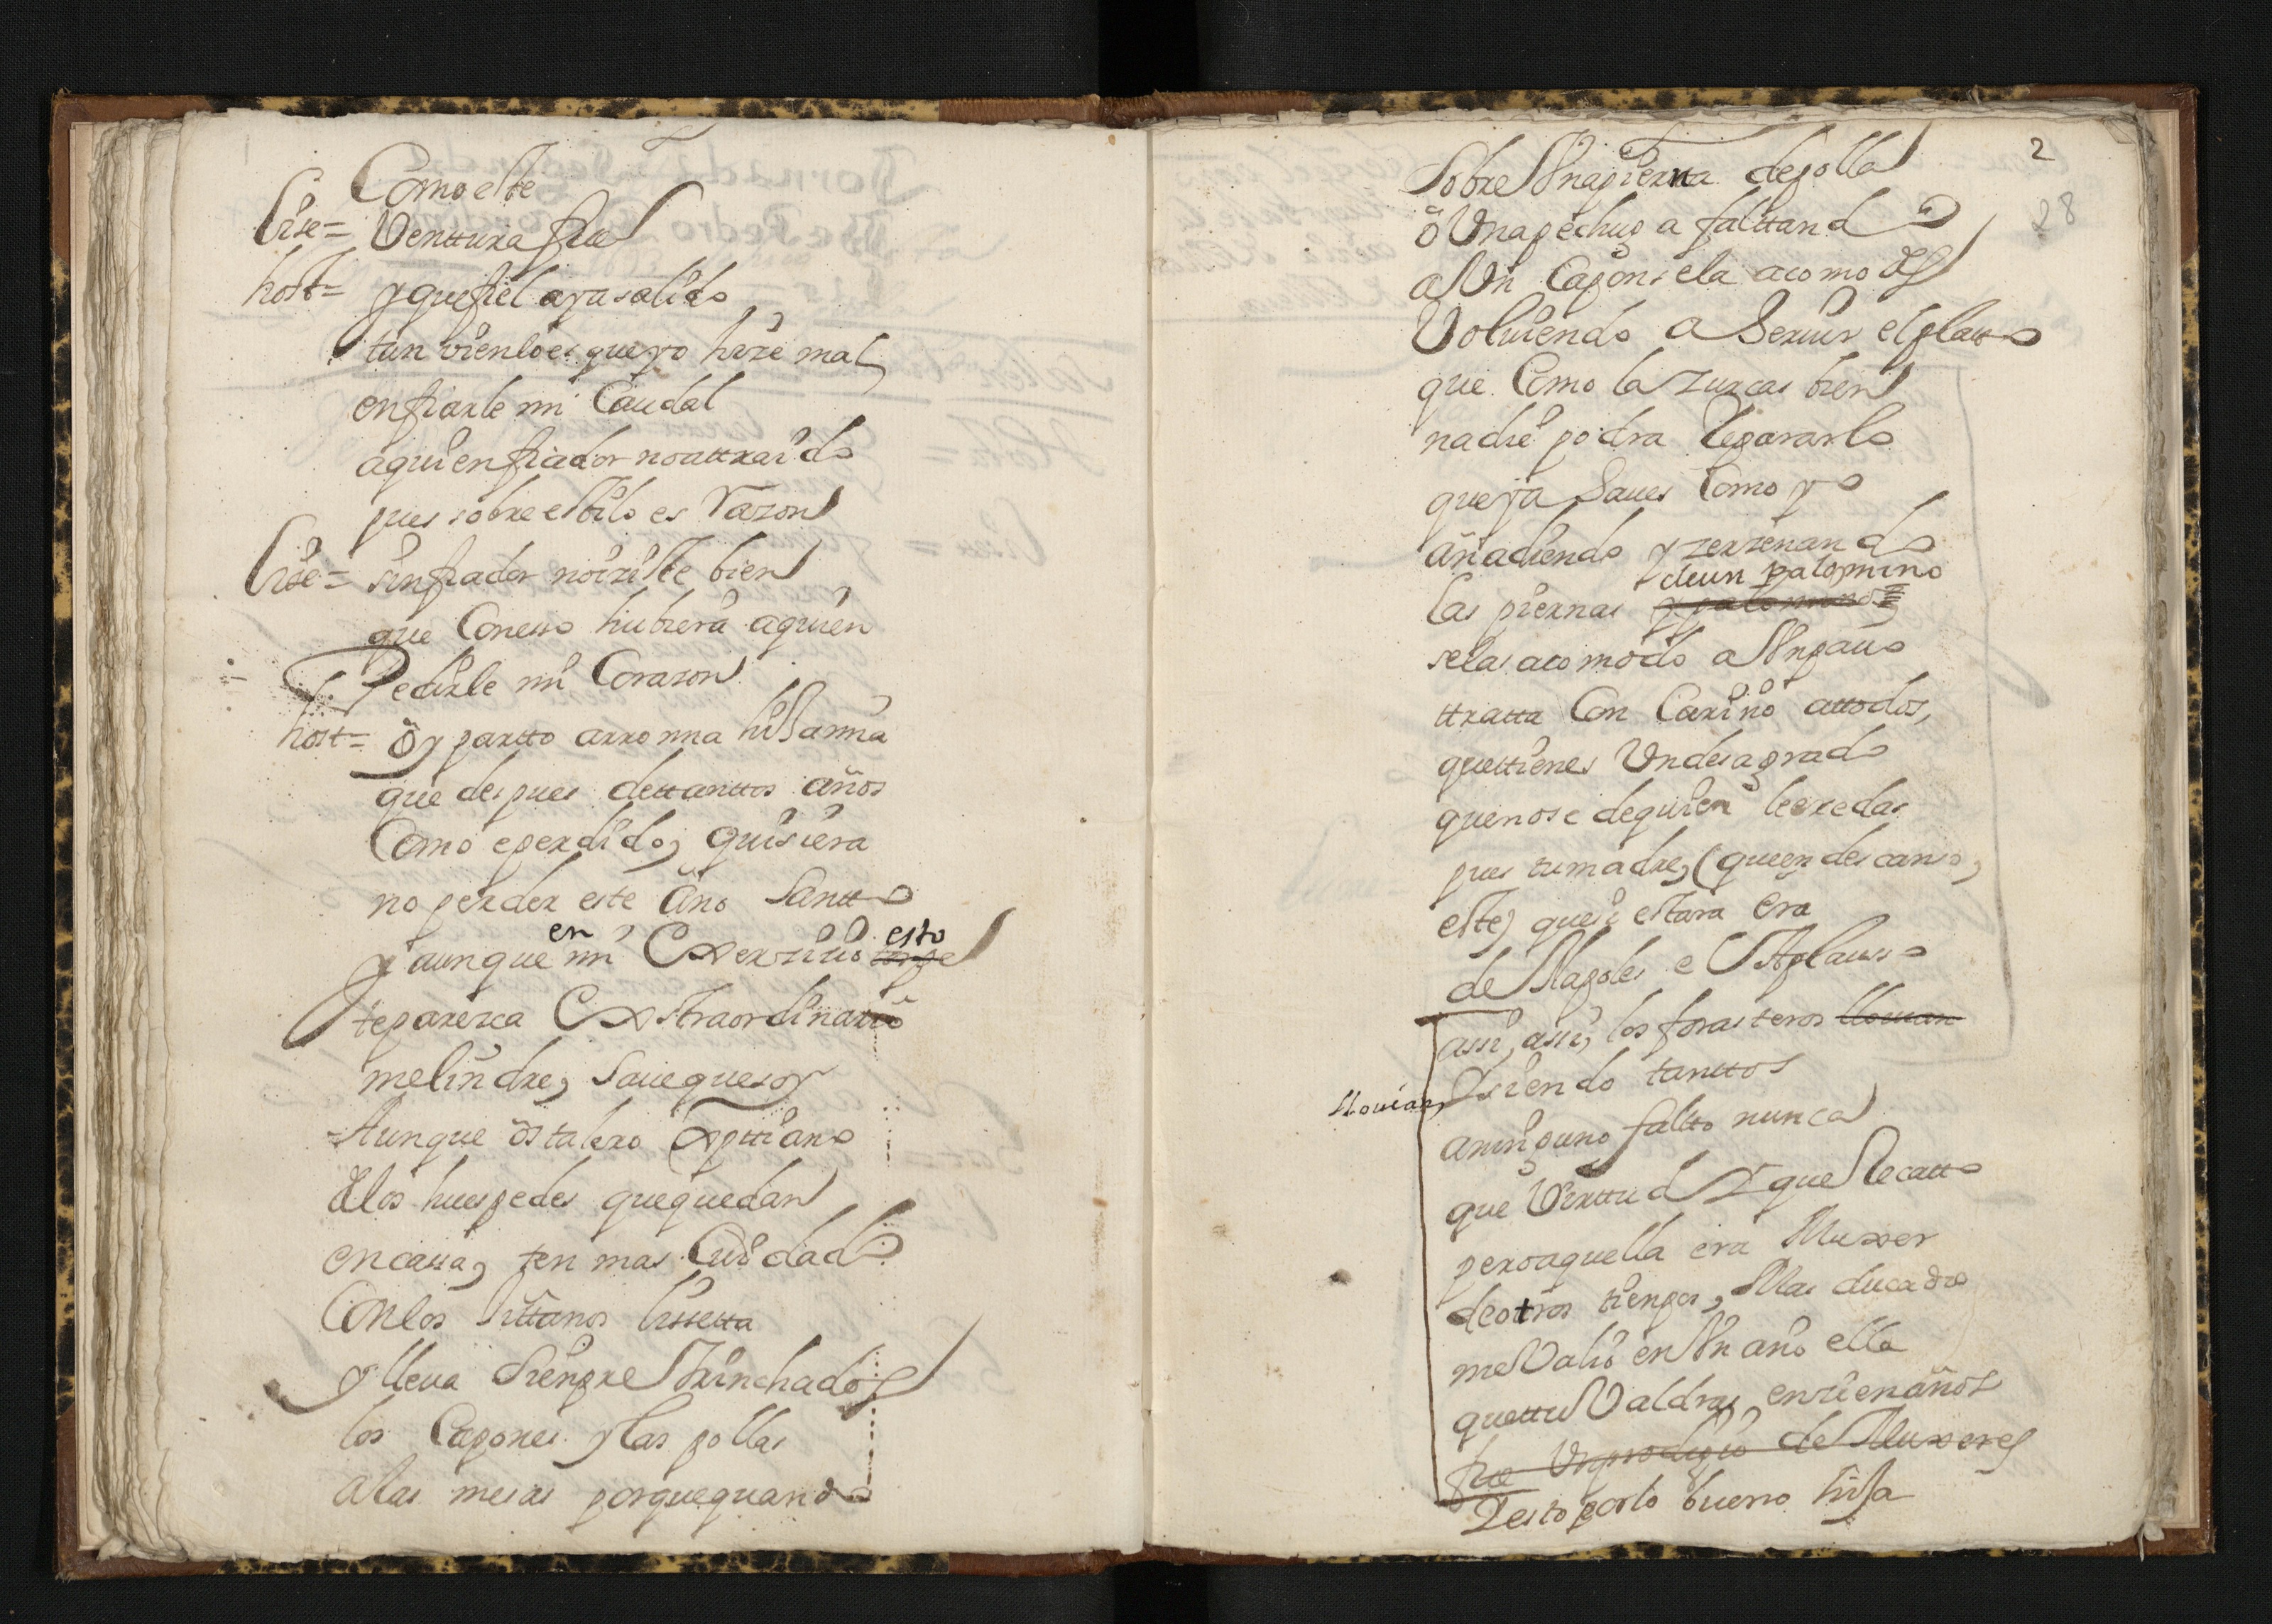 Como este
Lise= Venttura fue
host= y que fiel aya salido
tan vien lo es que yo hize mal
en fiarle mi Caudal
a quien fiador no attraido
pues sobre estilo es razon
Lise= sin fiador no iziste bien
que Con esso hubiera a quien
Pedirle mi Corazon
host= oy partto arroma hija mia
que despues dettanttos años
Como e perdido, quisiera
no perder este año Santto
en esto
y aunque mi Exerzizio
te parezca Extraordinario
melindre, saue que soy
Aunque ostalero xpttiano
de los huespedes que quedan
en cassa, ten mas Cuidado
Con los Jittanos lissetta
y lleua Sienpre trinchados
los Capones y las pollas
a las mesas por que quando
2
28
Sobre Vna pierna de polla
o Vna pechuga falttando
a Vn Capon se la acomodes
Voluiendo a Seruir el platto
que Como la zurcas bien
nadie podra Repararlo
que ya Saues Como yo
añadiendo y zerzenando
de un palomino
las piernas y palominos
se las acomodo a Vn pauo
ttratta Con Cariño attodos,
que ttienes Vn desagrado
que no se de quien le eredas
pues tu madre, (que en descanso,
este) que si estara era
de Napoles el Aplauso
assi, assi, los forasteros llouian
llouian, y siendo tanttos
a ninguno faltto nunca
que Virttud Y que Recatto
pero aquella era Muxer
de otros tienpos, Mas ducados
me Valio en Vn año ella
que ttu Valdras en zien años
fue Vn prodigio de Muxeres
Y esto por lo bueno hija